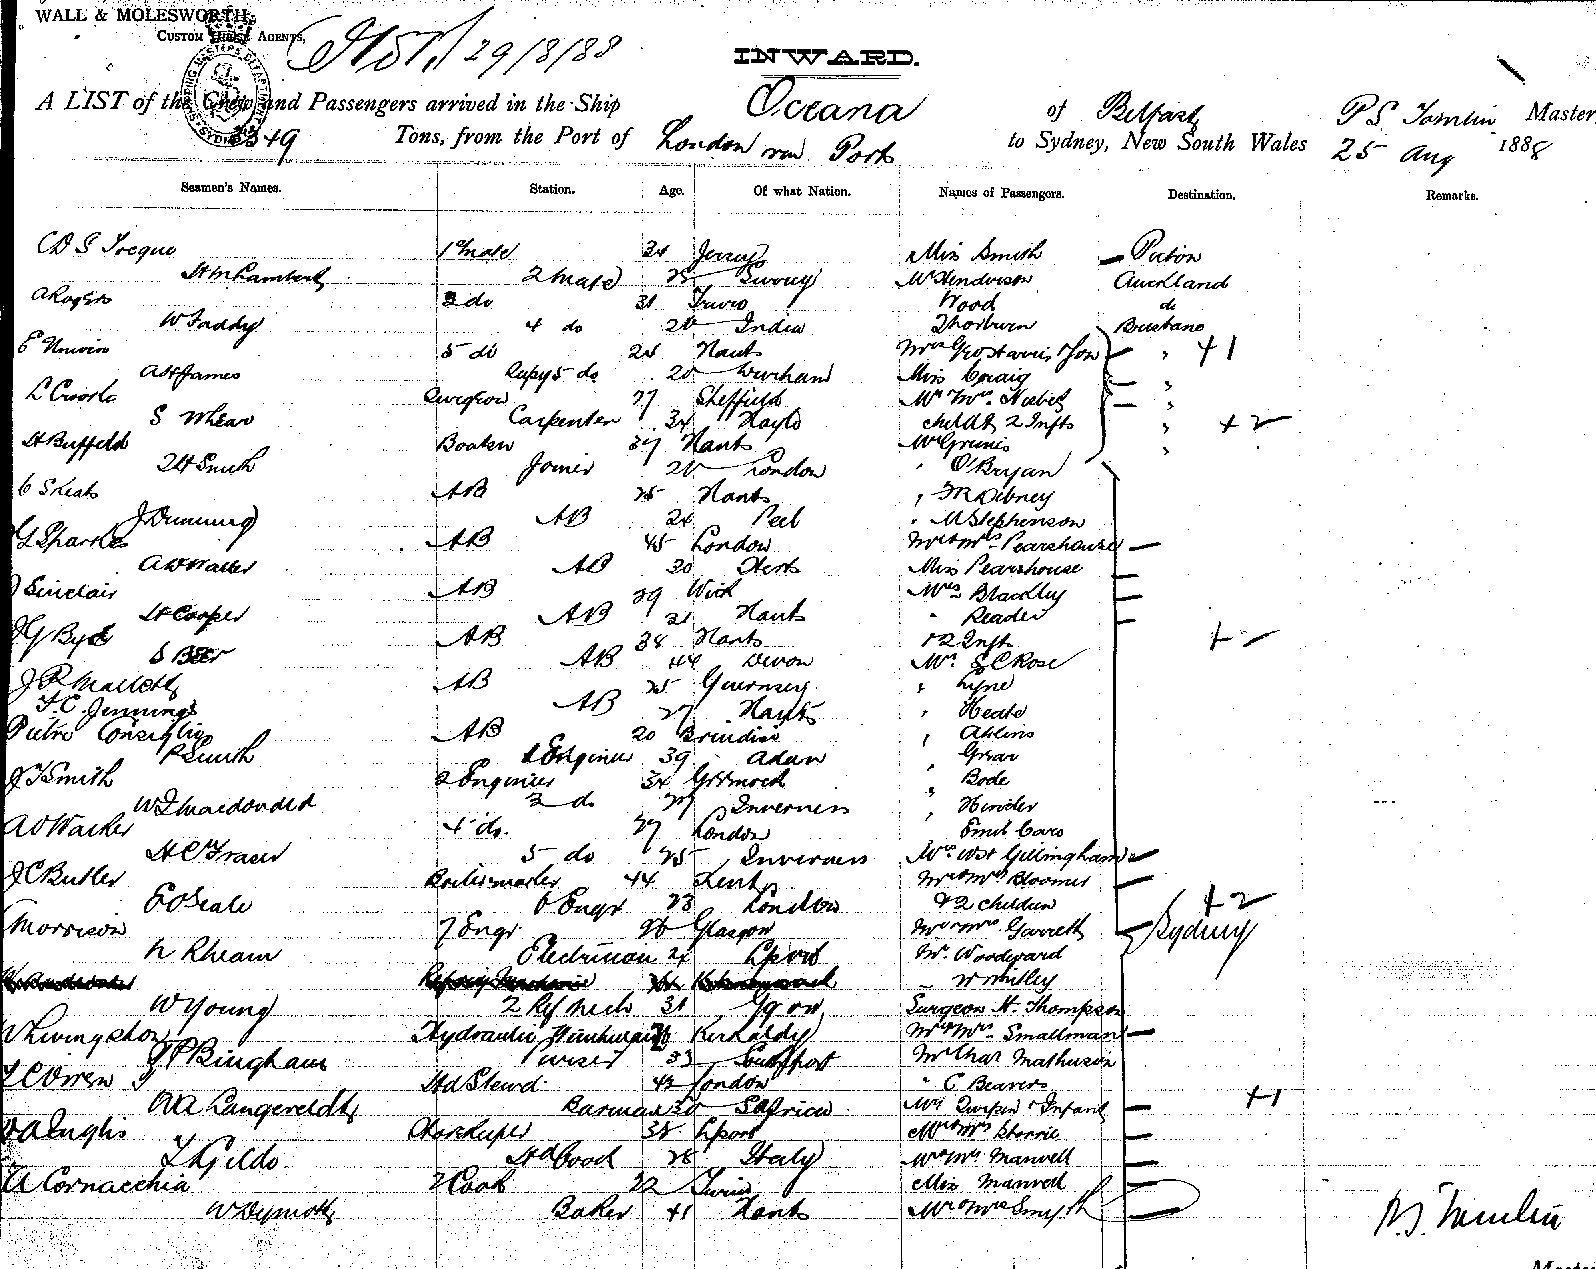 WALL & MOLESWORTH,
CUSTOM HOUSE AGENTS,
29/8/88
INWARD.
A LIST of the Crew and Passengers arrived in the Ship Oceana of Belfast P S Tomlin Master
3349 Tons, from the Port of London via Ports to Sydney, New South Wales 25 Aug 1888
Seamen's Names. Station. Age. Of what Nation. Names of Passengers. Destination. Remarks.
1 Mate 34 Jersey Miss Smith Picton
H M Lambert 2 Mate 28 Surrey Mr Henderson Auckland
A Rogers 3 do 31 Truro Wood do
W Faddy 4 do India Thorburn Brisbane
E Unwin 5 do 24 Hants Mrs Geo Harris & Son " +1
A H James Supy 5 do 20 Miss Craig "
Surgeon 27 Sheffield Mr & Mrs Nisbet "
S Whear Carpenter 34 Hayle child & 2 Infts " +2
H Buffeld Boatsn 37 Hants Mr "
Smith Joiner London " O'Bryan
C Skeats AB 25 Hants " Dibney
J Dunning AB 24 Peel " M Stephenson
G Sparkes AB 45 London Mr & Mrs Pearshouse
A W Walter AB 30 Herts Miss Pearshouse
J Sinclair AB 29 Wick Mrs Blackley
H Cooper AB 21 Hants " Reader
J G Byett AB 38 Hants & 2 Infts +2
S Beer AB 44 Devon Mr S C Rose
J R Mallett AB 25 Guernsey " Lyne
F. C. Jennings AB 27 Hants " Heate
Pietro Consiglio AB 20 Brindisi " Ahlins
P Smith 1 Engineer 39 Aden " Grear
J T Smith 2 Engineer 34 Greenock " Bode
W J Macdonald 3 do Inverness " Hinder
A D Walker 4 do. 27 London Emil Cars
H C Fraser 5 do 25 Inverness Mrs Wst Gillingham
J C Butler Boilermaker 44 Kent Mr & Mrs Bloomer
E O Seale 6 Engr 23 London & 2 children +2
Morrison 7 Engr 26 Glasgow Mr & Mrs Garrett Sydney
N Rheam Electrician 24 Lpool Mr. Woodward
" W Milley
W Young 2 Ref Mech 31 Ggow Surgeon H. Thompson
W Livingston Hydraulic Kirkaldy Mr & Mrs Smallman
J P Bingham Purser 33 Southport Mr Chas Matheson
Hd Stewd. 43 London " C Beavers
W A Langereldt Barman 30 S Africa Mrs & Infant +1
W A Inglis Storekeeper 38 Lpool Mr & Mrs Storrie
L Gildo Hd Cook 28 Italy Mr & Mrs Manvell
A Cornacchia 2 Cook 22 Turin Miss Manvell
W Dymott Baker 41 Hants Mr & Mrs Smyth
P. S. Tomlin
Master